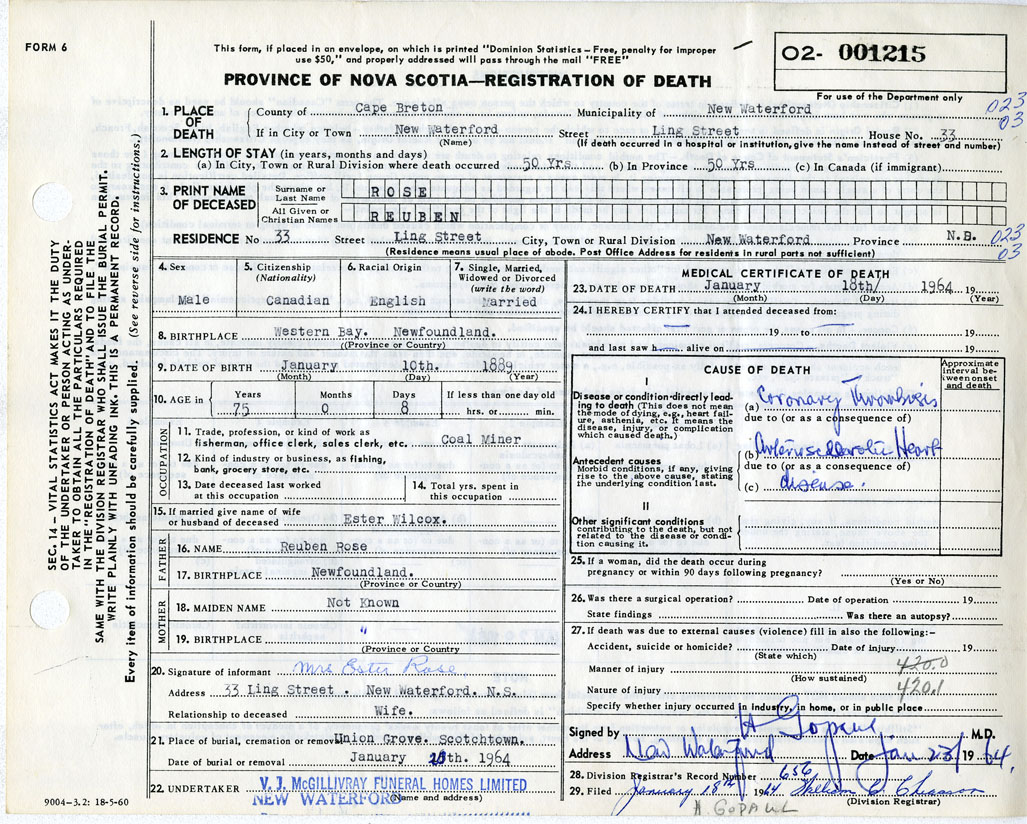 FORM 6
This form, if placed in an envelope, on which is printed "Dominion Statistics – Free, penalty for improper
use $50," and properly addressed will pass through the mail "FREE"
PROVINCE OF NOVA SCOTIA—REGISTRATION OF DEATH
02- 001215
For use of the Department only
023
03
1. PLACE OF DEATH
County of Cape Breton Municipality of New Waterford
If in City or Town New Waterford Street Ling Street House No. 33
(Name) (If death occurred in a hospital or institution, give the name instead of street and number)
2. LENGTH OF STAY (in years, months and days)
(a) In City, Town or Rural Division where death occurred 50 Yrs. (b) In Province 50 Yrs. (c) In Canada (if immigrant)
3. PRINT NAME OF DECEASED
Surname or Last Name ROSE
All Given or Christian Names REUBEN
RESIDENCE No 33 Street Ling Street City, Town or Rural Division New Waterford Province N.B.
023
03
(Residence means usual place of abode. Post Office Address for residents in rural parts not sufficient)
4. Sex
Male
5. Citizenship
(Nationality)
Canadian
6. Racial Origin
English
7. Single, Married,
Widowed or Divorced
(write the word)
Married
8. BIRTHPLACE Western Bay. Newfoundland.
(Province or Country)
9. DATE OF BIRTH January 10th. 1889
(Month) (Day) (Year)
10. AGE in Years 75 Months 0 Days 8 If less than one day old
hrs. or min.
OCCUPATION
11. Trade, profession, or kind of work as
fisherman, office clerk, sales clerk, etc. Coal Miner
12. Kind of industry or business, as fishing,
bank, grocery store, etc.
13. Date deceased last worked
at this occupation
14. Total yrs. spent in
this occupation
15. If married give name of wife
or husband of deceased Ester Wilcox.
FATHER
16. NAME Reuben Rose
17. BIRTHPLACE Newfoundland.
(Province or Country)
MOTHER
18. MAIDEN NAME Not Known
19. BIRTHPLACE "
(Province or Country
20. Signature of informant Mrs Ester Rose
Address 33 Ling Street. New Waterford. N.S.
Relationship to deceased Wife.
21. Place of burial, cremation or removal Union Grove. Scotchtown.
Date of burial or removal January th. 1964
22. UNDERTAKER V. J. McGILLIVRAY FUNERAL HOMES LIMITED
NEW WATERFORD
(Name and address)
MEDICAL CERTIFICATE OF DEATH
23. DATE OF DEATH January 18th/ 1964 19
(Month) (Day) (Year)
24. I HEREBY CERTIFY that I attended deceased from:
19 to 19
and last saw h alive on 19
CAUSE OF DEATH
Approximate interval between onset and death
I
Disease or condition directly leading to death (This does not mean the mode of dying, e.g., heart failure, asthenia, etc. It means the disease, injury, or complication which caused death.)
(a) Coronary Thrombosis
due to (or as a consequence of)
Antecedent causes
Morbid conditions, if any, giving rise to the above cause, stating the underlying condition last.
(b) Arteriosclerotic Heart
due to (or as a consequence of)
(c) disease.
II
Other significant conditions
contributing to the death, but not related to the disease or condition causing it.
25. If a woman, did the death occur during
pregnancy or within 90 days following pregnancy?
(Yes or No)
26. Was there a surgical operation? Date of operation 19
State findings Was there an autopsy?
27. If death was due to external causes (violence) fill in also the following:–
Accident, suicide or homicide? Date of injury 19
(State which)
Manner of injury 420.0
(How sustained)
Nature of injury 420.1
Specify whether injury occurred in industry, in home, or in public place
Signed by H Gopaul M.D.
Address New Waterford Date Jan 23/ 19 64.
28. Division Registrar's Record Number 656
29. Filed January 18th 1964
(Division Registrar)
H. GOPAUL
SEC. 14 – VITAL STATISTICS ACT MAKES IT THE DUTY
OF THE UNDERTAKER OR PERSON ACTING AS UNDERTAKER
TO OBTAIN ALL THE PARTICULARS REQUIRED
IN THE "REGISTRATION OF DEATH" AND TO FILE THE
SAME WITH THE DIVISION REGISTRAR WHO SHALL ISSUE THE BURIAL PERMIT.
WRITE PLAINLY WITH UNFADING INK. THIS IS A PERMANENT RECORD.
Every item of information should be carefully supplied. (See reverse side for instructions.)
9004-3.2: 18-5-60